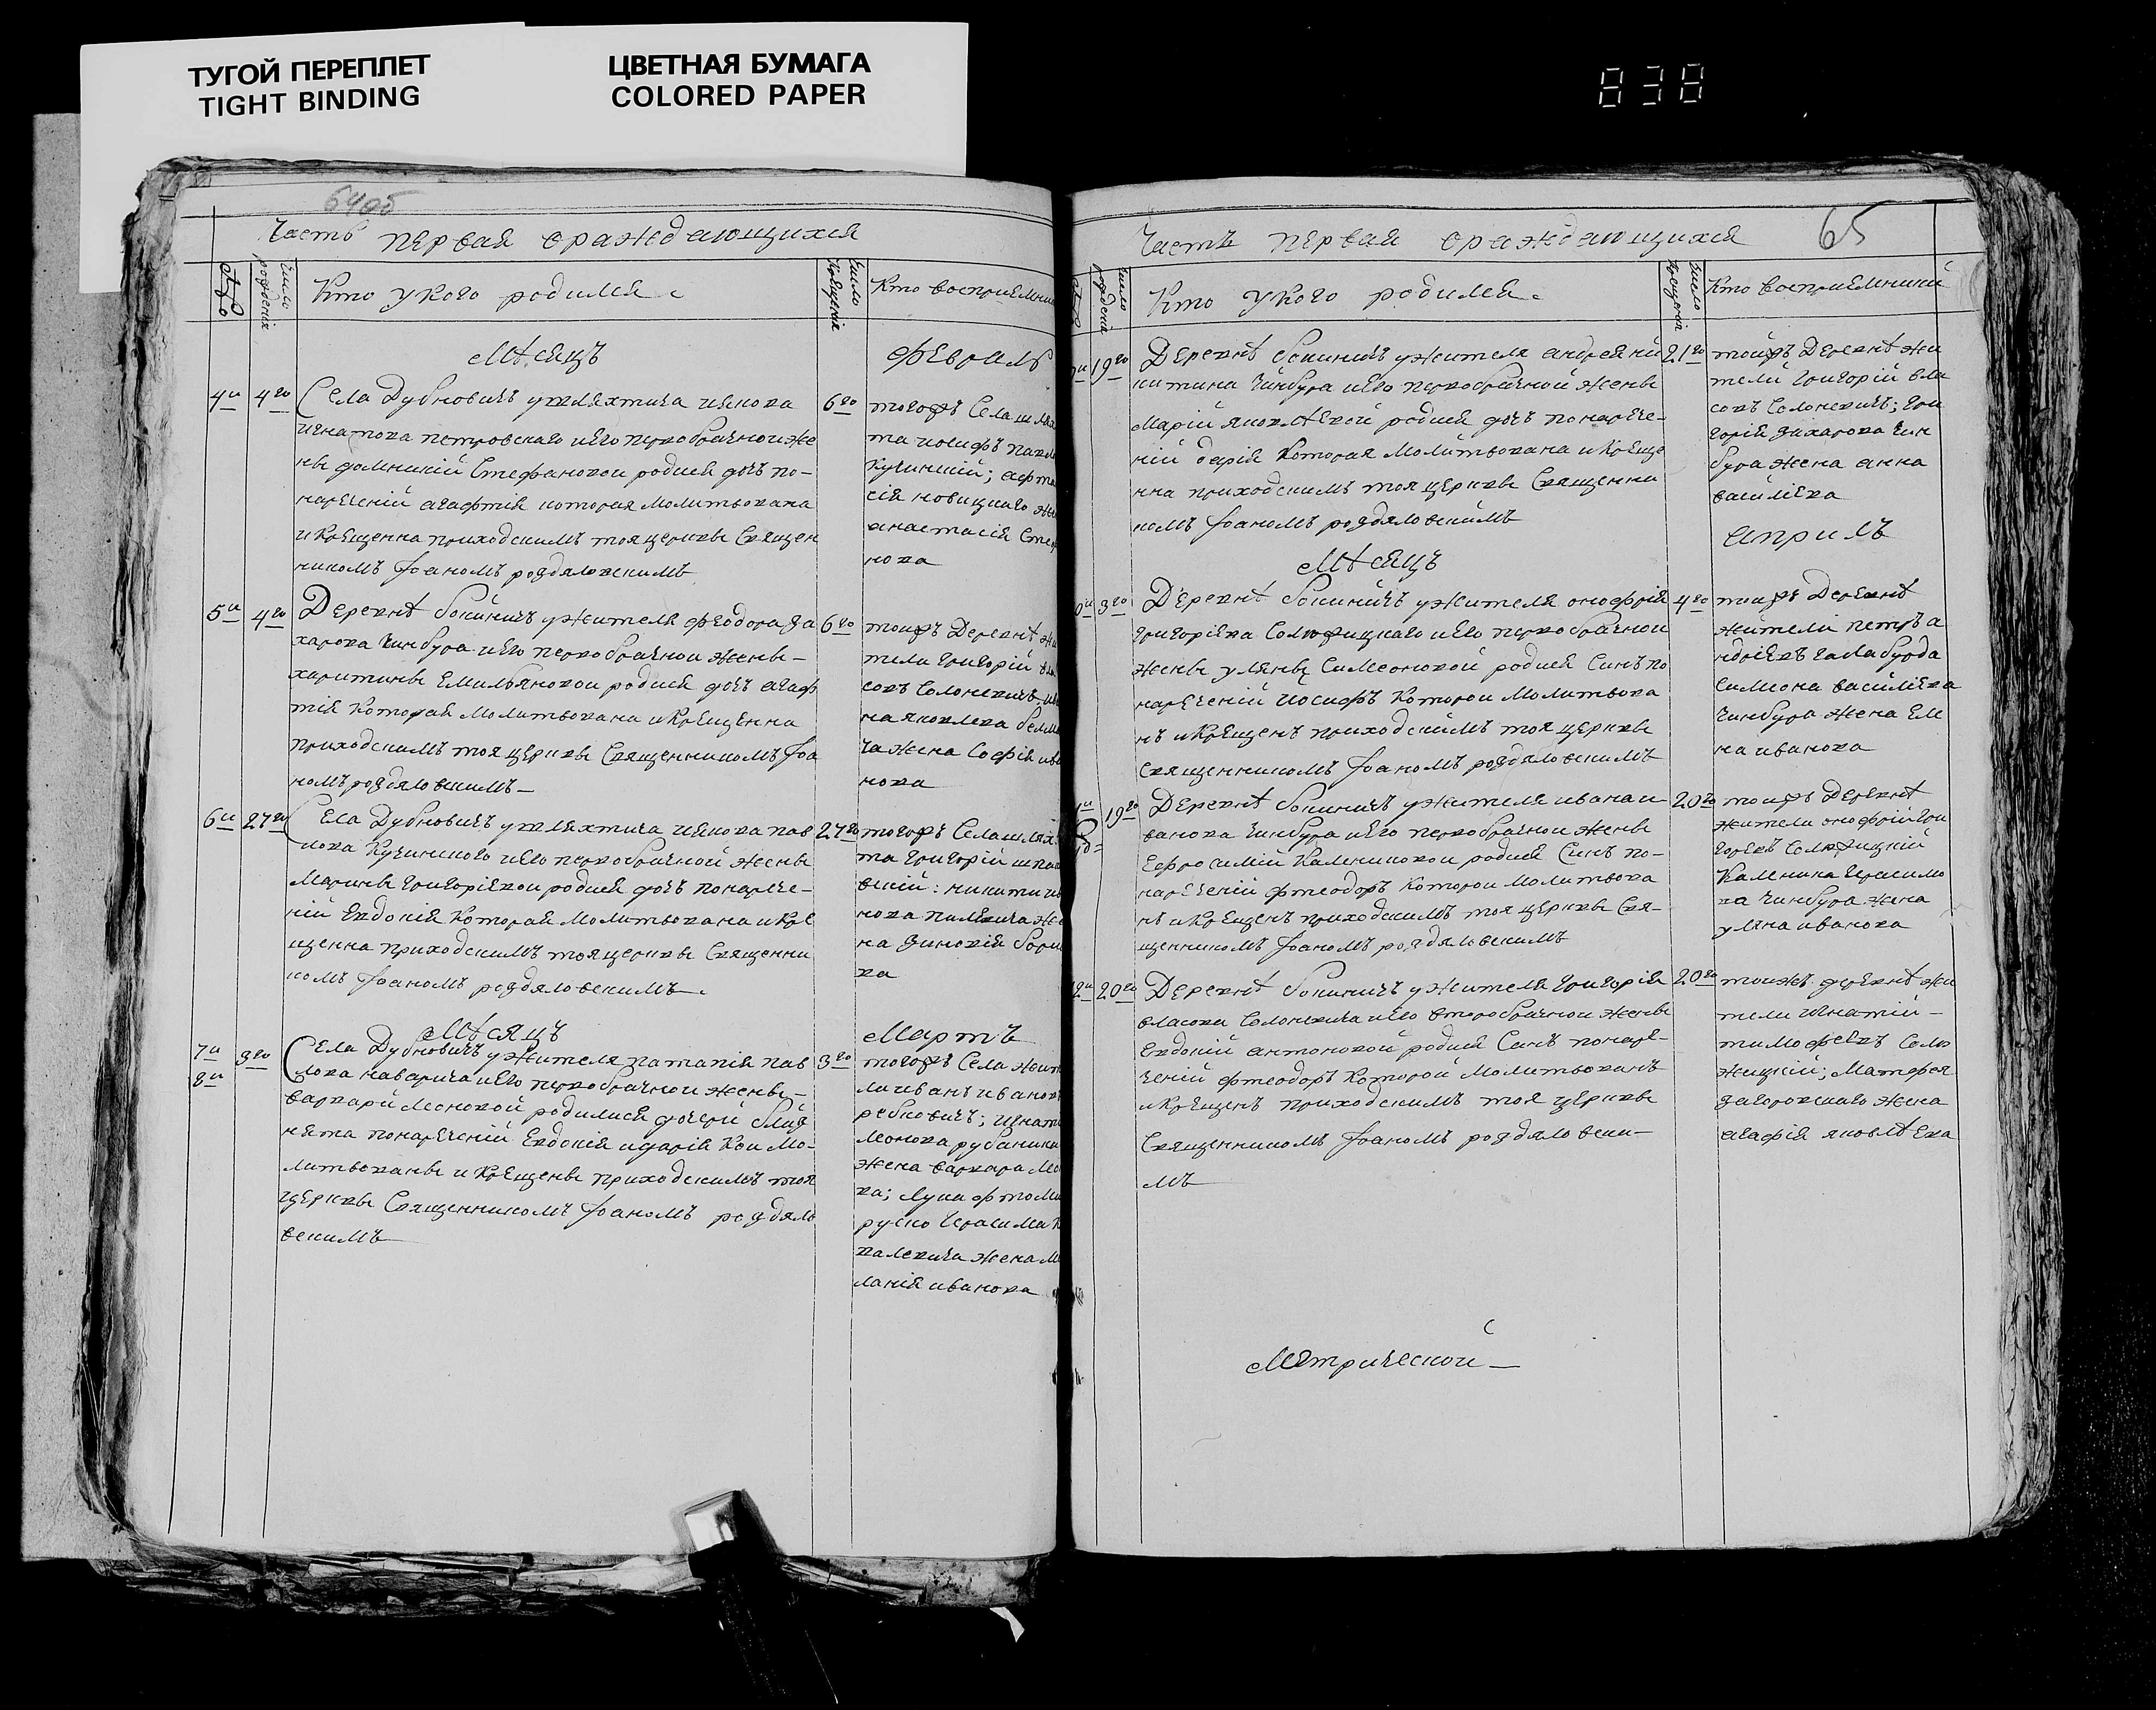 ТУГОЙ ПЕРЕПЛЕТ
TIGHT BINDING
ЦВЕТНАЯ БУМАГА
COLORED PAPER
838
64об
Часть первая ораждающихся
Число рождения
Кто укого родился
Число крещения
Кто восприемники
Мѣсяцъ
февраль
4и 4го
Села Дубновичъ ушляхтича
петровскаго иего первобрачной же
ны доминикiй Стефановой родися дочь по-
нареченiй агафтiя которая Молитвована
и Крещенна приходскимъ тоя церквы Священ
никомъ Іоаномъ роздяловскимъ
6го
тогожъ Села шлях
та иосифъ
Кучинский;
новицкаго
анастасiя Стеф
нова
5и 4го
Деревнѣ Бокиничъ ужителя феодора за
харова Чинбура иего первобрачной жены
харитины Емильяновой родися дочь агаф
тiя Которая Молитвована и Крещенна
приходскимъ тоя церквы Священникомъ Іоа
номъ роздяловскимъ
6го
тоижъ Деревнѣ жи
тели григорiй вла
совъ Солоневичъ;
на яковлева
ча жена Софiя ива
нова
6и 27го
Села Дубновичъ ушляхтича пав
лова Кучинского иего первобрачной жены
Марины григорiевой родися дочь понарече-
нiй Евдокiя Которая Молитвована и Кре
щенна приходскимъ тоя церквы Священни
комъ Іоаномъ роздяловскимъ
27го
тогожъ Села шлях
та григорiй
вский: никити ив
нова жe
на зиновiя
ва
Мѣсяцъ
Мартъ
7и 8и 3го
Села Дубновичъ ужителя патапiя пав
лова наварича иего первобрачной жены
варвари Леоновой родилися дочери близ
нята понареченiй Евдокiя идарiя Кои Мо-
литвованы и Крещены приходскимъ тоя
церквы Священникомъ Іоаномъ роздяло
вскимъ
3го
тогожъ Села жит
ли иванъ иванов
ребковичъ; игнат
леонова
жена варвара
ва; лука
руско герасима
валевича жена
ланiя иванова
65
Часть первая ораждающихся
Число рождения
Кто укого родился
Число крещения
Кто восприемники
19го
Деревнѣ Бокиничъ ужителя андрея ни
китина Чинбура иего первобрачной жены
Марiй яковлѣвой родися дочь понарече-
нiй дарiя Которая Молитвована и Креще
нна приходскимъ тоя церквы Священни
комъ Іоаномъ роздяловскимъ
21го
тоижъ Деревнѣ жи
тели григорiй вла
совъ Солоневичъ; гри
горiя захарова чин
бура жена анна
василiева
Мѣсяцъ
априлъ
3го
Деревнѣ Бокиничъ ужителя онофрiя
григорiева иего первобрачной
жены уляны Симеоновой родися Синъ по
нареченiй иосифъ Которой Молитвова
нъ и Крещенъ приходскимъ тоя церквы
Священникомъ Іоаномъ роздяловскимъ
4го
тоижъ Деревнѣ
жители петръ а
ндрiевъ галабурда
Симеона василiева
Чинбура жена Еле
на иванова
19го
Деревнѣ Бокиничъ ужителя ивана и
ванова Чинбура иего первобрачной жены
Ефросимiй Калениковой родися Синъ по-
нареченiй фтеодоръ Которой Молитвова
нъ и Крещенъ приходскимъ тоя церквы Свя-
щенникомъ Іоаномъ роздяловскимъ
20го
тоижъ Деревнѣ
жители онофрiй гри
горевъ
Каленика герасимо
ва Чинбура жена
уляна иванова
20го
Деревнѣ Бокиничъ ужителя григорiя
власова Солоневича иего второбрачной жены
Евдокiй антоновой родися Синъ понаре-
ченiй фтеодоръ Которой Молитвованъ
и Крещенъ приходскимъ тоя церквы
Священникомъ Іоаномъ роздяловски-
мъ
20го
тоижъ деревнѣ жи
тели игнатiй
тимофеевъ

загоровскаго жена
агафiя яковлѣва
Метрической